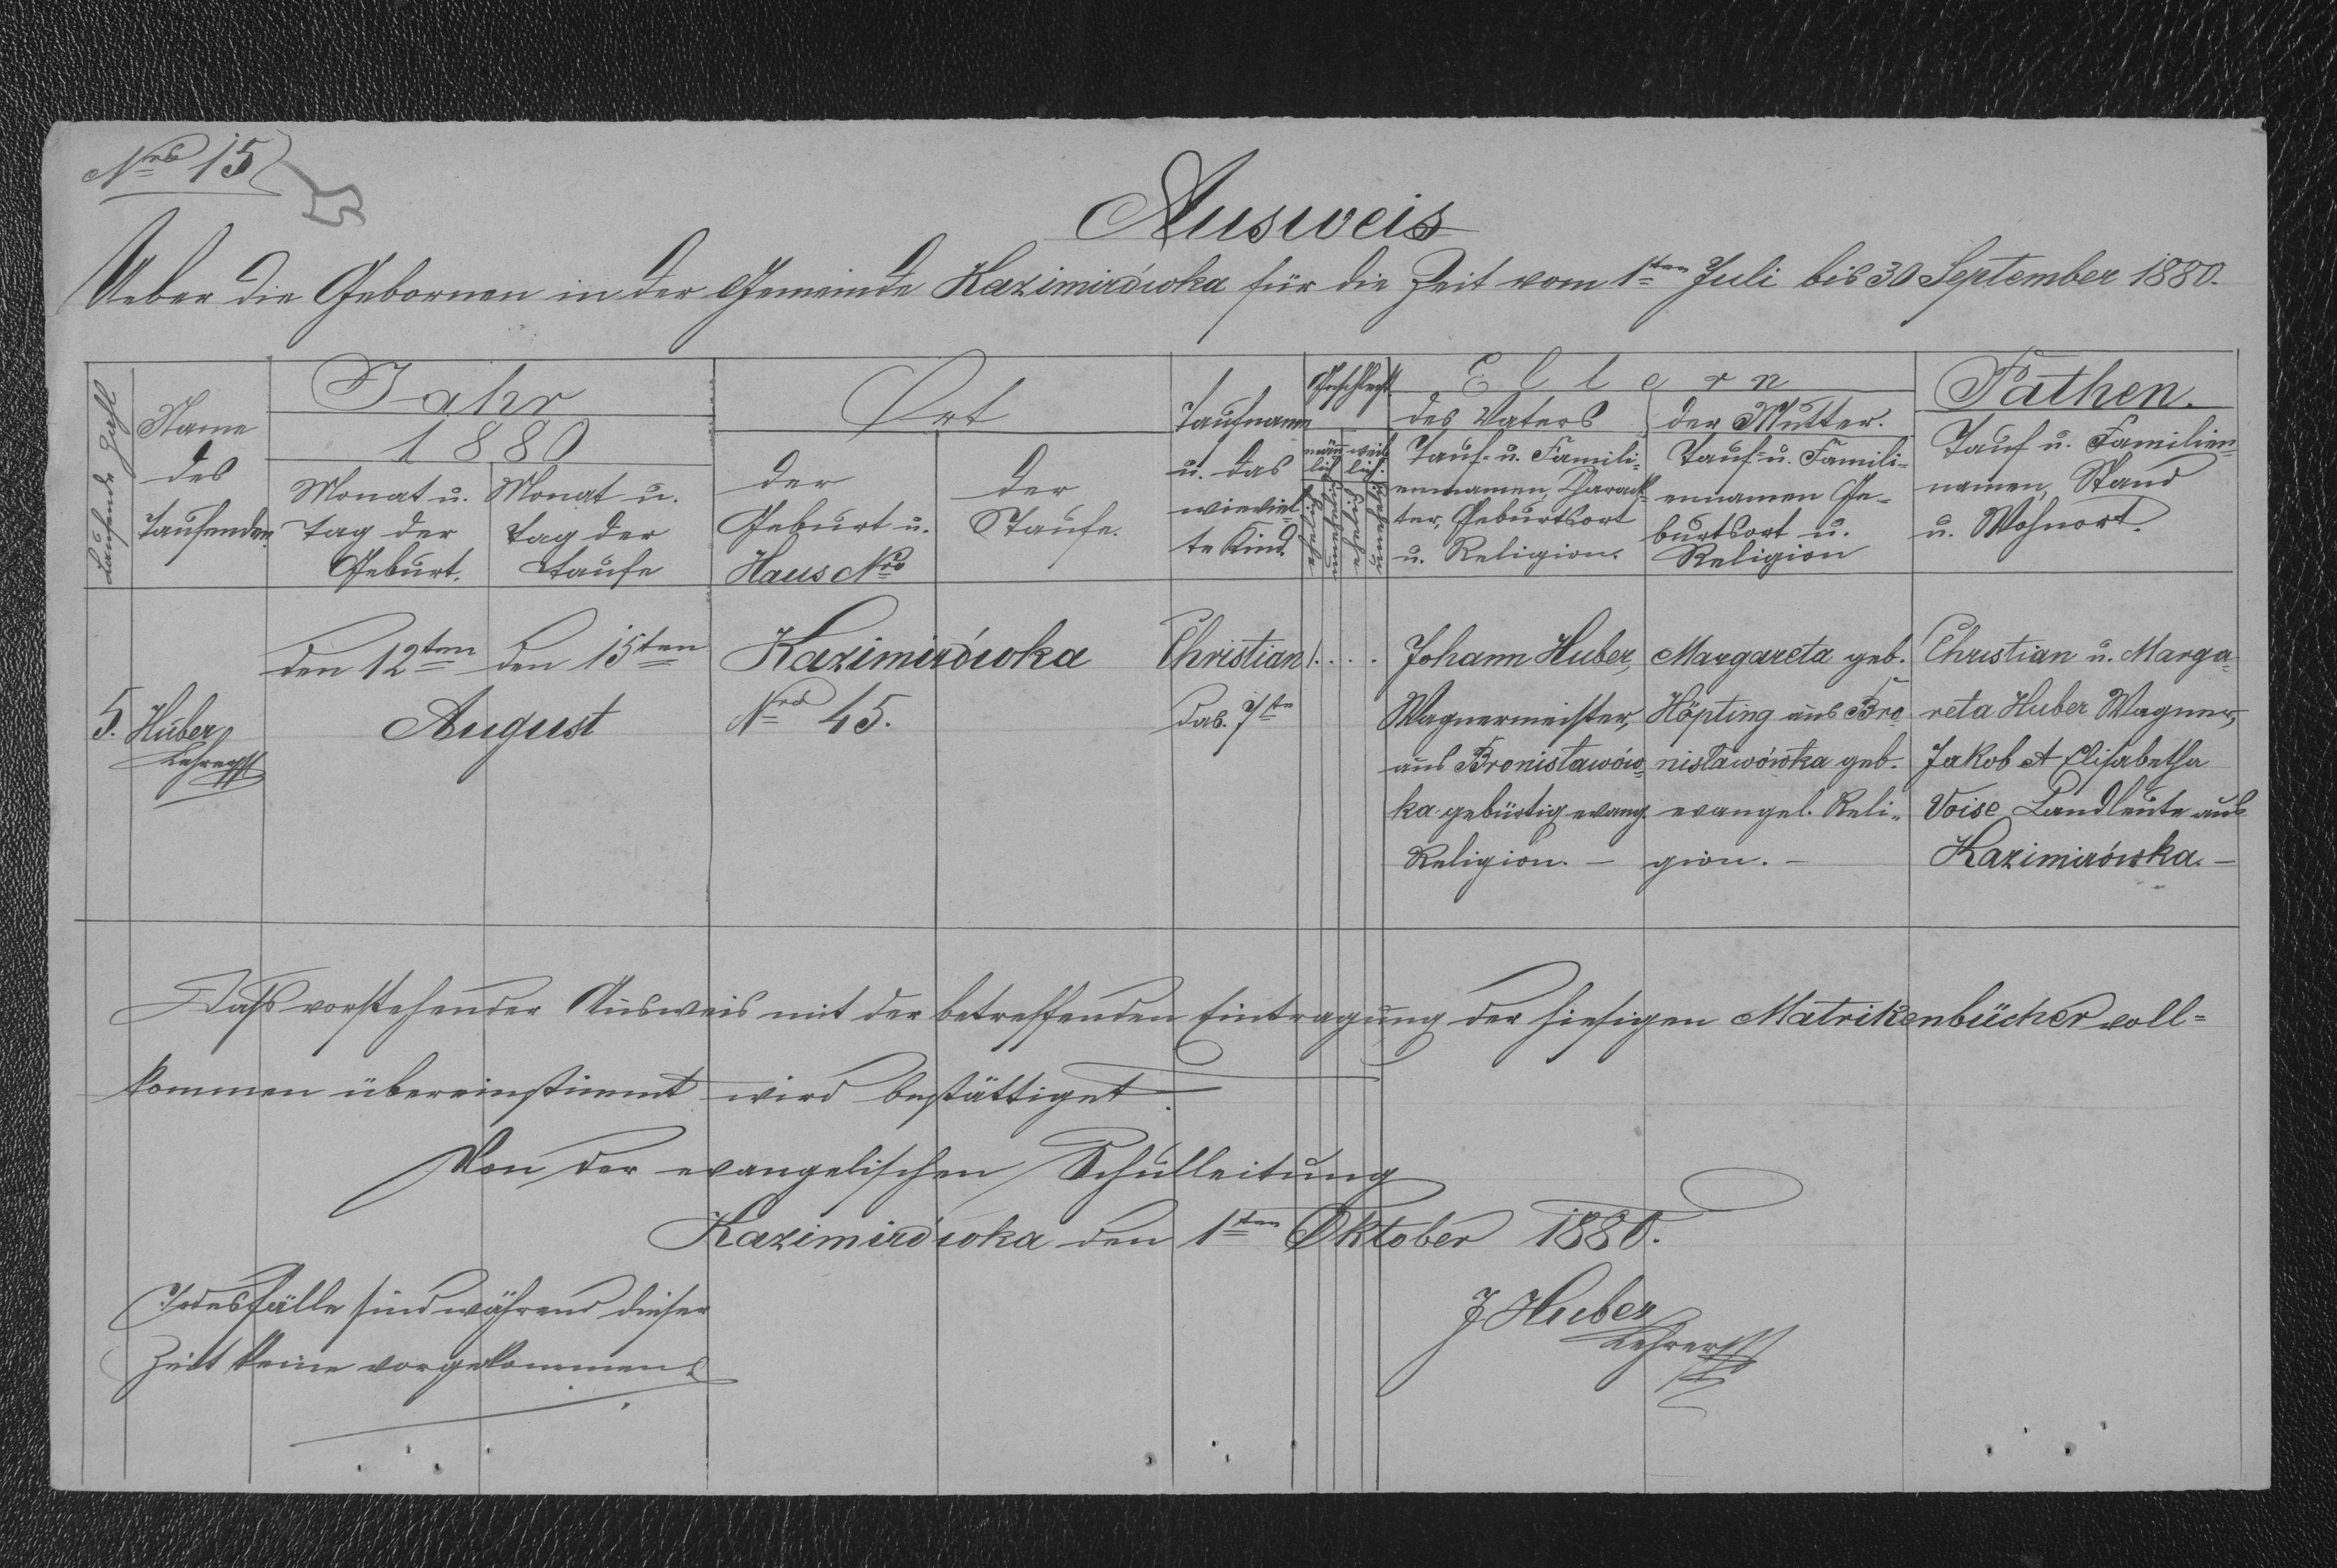 Nro 15
Ausweis
Ueber die Gebornen in der Gemeinde Kazimirówka für die Zeit vom 1ten Juli bis 30 September 1880.
Laufende Zahl
Name
des
Taufenden
Jahr
1880
Monat u.
Tag der
Geburt.
Monat u.
Tag der
Taufe
Ort
der
Geburt u.
Haus Nro
der
Taufe.
Taufname
u. das
wieviel-
te Kind.
Geschlecht
männ
lich
weib
lich.
ehelich
unehelich
ehelich
unehelich
Eltern
des Vaters
Tauf- u. Famili-
ennamen, Charak-
ter, Geburtsort
u. Religion.
der Mutter.
Tauf- u. Famili-
ennamen Ge-
burtsort u.
Religion
Pathen.
Tauf u. Familien-
namen, Stand
u. Wohnort.
5.
Huber
Lehrer
den 12ten
den 15ten
August
Kazimirówka
Nro 45.
Christian
das. 7te
1 . . . .
Johann Huber,
Wagnermeister,
aus Bronisławów-
ka gebürtig evang.
Religion. –
Margareta geb.
Höpting aus Bro
nisławówka geb.
evangel. Reli-
gion. –
Christian u. Marga-
reta Huber Wagner,
Jakob et Elisabetha
Voise Landleute aus
Kazimirówka. –
Daß vorstehender Ausweis mit der betreffenden Eintragung der hiesigen Matrikenbücher voll-
kommen übereinstimmt wird bestättiget.
Von der evangelischen Schulleitung
Kazimirówka den 1ten Oktober 1880.
Todesfälle sind während dieser
Zeit keine vorgekommen.
J Huber
Lehrer